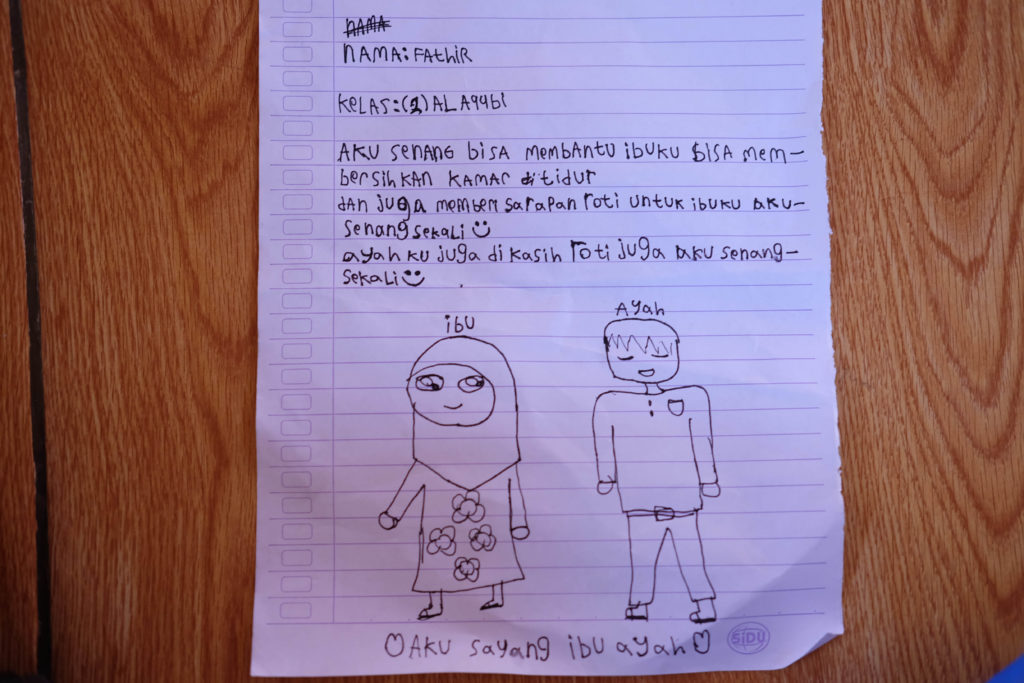 NAMA
NAMA: FAthiR
KELAS:(2)ALAqqubi
AKU SENANG biSA MEMbANtU ibUKU biSA MEM-
bERSihKAN KAMAr ditidur
dAN jugA MEMbERi SARAPAN roti UNTUK ibuku AKU-
SENANG SEKALi
AyAh KU jugA di KASih roti jugA AKU SENANG-
SEKALi
ibu
AyAh
AKU SAyAng ibu AyAh
SiDU